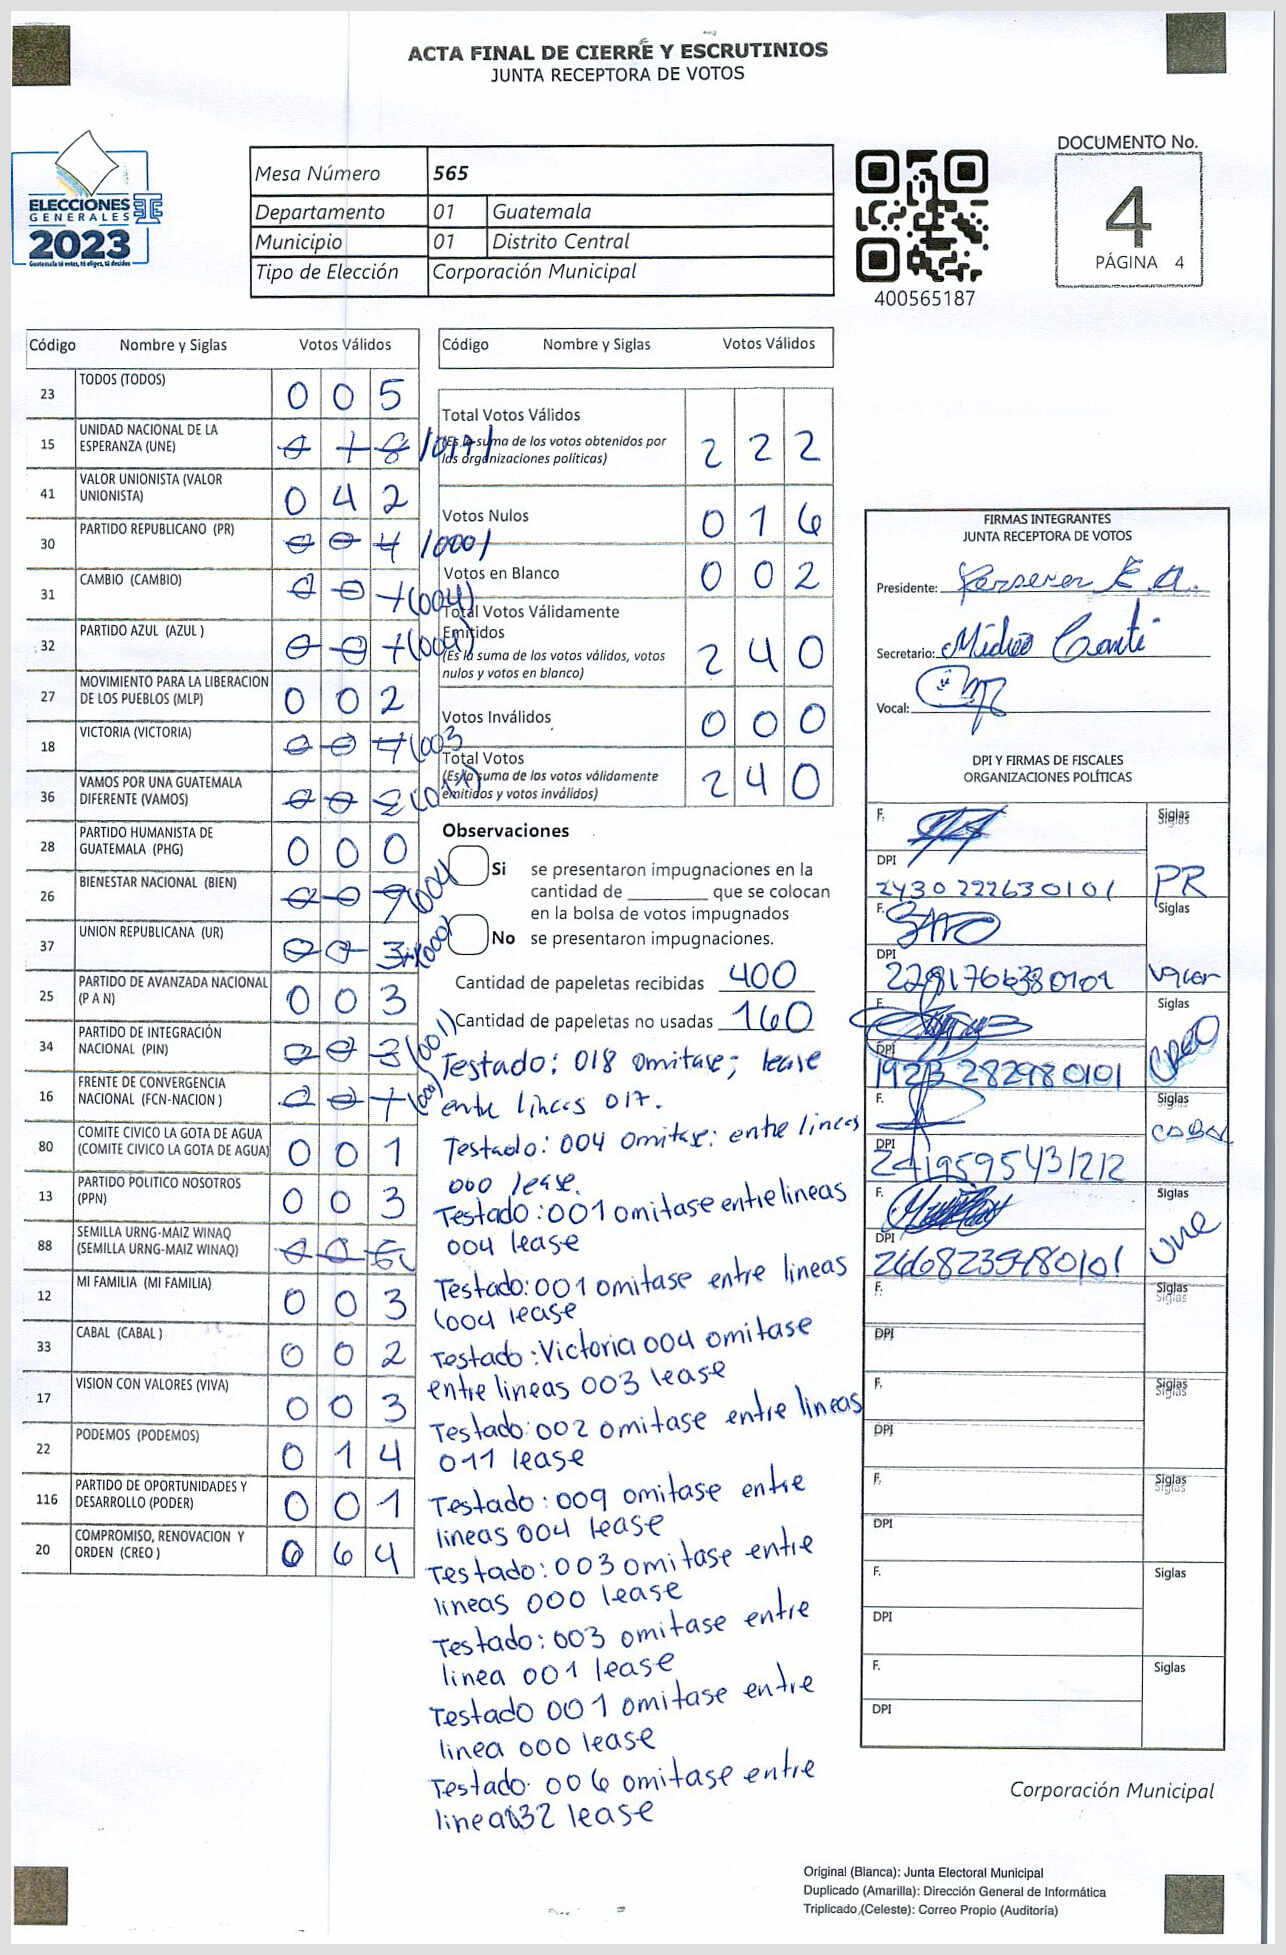 ACTA FINAL DE CIERRE Y ESCRUTINIOS
JUNTA RECEPTORA DE VOTOS
ELECCIONES
GENERALES
2023
Mesa Número 565
Departamento 01 Guatemala
Municipio 01 Distrito Central
Tipo de Elección Corporación Municipal
400565187
DOCUMENTO No.
4
PÁGINA 4
Código Nombre y Siglas Votos Válidos
23 TODOS (TODOS) 0 0 5
15 UNIDAD NACIONAL DE LA ESPERANZA (UNE) 0 1 8 (017)
41 VALOR UNIONISTA (VALOR UNIONISTA) 0 4 2
30 PARTIDO REPUBLICANO (PR) 0 0 4 (000)
31 CAMBIO (CAMBIO) 0 0 1 (004)
32 PARTIDO AZUL (AZUL ) 0 0 1 (004)
27 MOVIMIENTO PARA LA LIBERACION DE LOS PUEBLOS (MLP) 0 0 2
18 VICTORIA (VICTORIA) 0 0 4 (003
36 VAMOS POR UNA GUATEMALA DIFERENTE (VAMOS) 0 0 2 (011)
28 PARTIDO HUMANISTA DE GUATEMALA (PHG) 0 0 0
26 BIENESTAR NACIONAL (BIEN) 0 0 9 (004)
37 UNION REPUBLICANA (UR) 0 0 3 (000)
25 PARTIDO DE AVANZADA NACIONAL (P A N) 0 0 3
34 PARTIDO DE INTEGRACIÓN NACIONAL (PIN) 0 0 3 (001)
16 FRENTE DE CONVERGENCIA NACIONAL (FCN-NACION ) 0 0 1 (000)
80 COMITE CIVICO LA GOTA DE AGUA (COMITE CIVICO LA GOTA DE AGUA) 0 0 1
13 PARTIDO POLITICO NOSOTROS (PPN) 0 0 3
88 SEMILLA URNG-MAIZ WINAQ (SEMILLA URNG-MAIZ WINAQ) 0 0 6
12 MI FAMILIA (MI FAMILIA) 0 0 3
33 CABAL (CABAL ) 0 0 2
17 VISION CON VALORES (VIVA) 0 0 3
22 PODEMOS (PODEMOS) 0 1 4
116 PARTIDO DE OPORTUNIDADES Y DESARROLLO (PODER) 0 0 1
20 COMPROMISO, RENOVACION Y ORDEN (CREO ) 0 6 4
Código Nombre y Siglas Votos Válidos
Total Votos Válidos
(Es la suma de los votos obtenidos por
las organizaciones políticas) 2 2 2
Votos Nulos 0 1 6
Votos en Blanco 0 0 2
Total Votos Válidamente
Emitidos
(Es la suma de los votos válidos, votos
nulos y votos en blanco) 2 4 0
Votos Inválidos 0 0 0
Total Votos
(Es la suma de los votos válidamente
emitidos y votos inválidos) 2 4 0
Observaciones
Si se presentaron impugnaciones en la
cantidad de ________ que se colocan
en la bolsa de votos impugnados
No se presentaron impugnaciones.
Cantidad de papeletas recibidas 400
Cantidad de papeletas no usadas 160
Testado: 018 omitase; lease
entre lineas 017.
Testado: 004 omitase: entre lineas
000 lease.
Testado: 001 omitase entre lineas
004 lease
Testado: 001 omitase entre lineas
004 lease
Testado: Victoria 004 omitase
entre lineas 003 lease
Testado: 002 omitase entre lineas
011 lease
Testado: 009 omitase entre
lineas 004 lease
Testado: 003 omitase entre
lineas 000 lease
Testado: 003 omitase entre
linea 001 lease
Testado 001 omitase entre
linea 000 lease
Testado 006 omitase entre
linea 032 lease
FIRMAS INTEGRANTES
JUNTA RECEPTORA DE VOTOS
Presidente:
Secretario:
Vocal:
DPI Y FIRMAS DE FISCALES
ORGANIZACIONES POLÍTICAS
F. Siglas
DPI
2430222630101 PR
F. Siglas
DPI
2281766380101 Valor
F. Siglas
DPI
1923 282980101 CREO
F. Siglas
DPI
2419595431212 CABAL
F. Siglas
DPI
2668239480101 UNE
F. Siglas
DPI
F. Siglas
DPI
F. Siglas
DPI
F. Siglas
DPI
F. Siglas
DPI
Corporación Municipal
Original (Blanca): Junta Electoral Municipal
Duplicado (Amarilla): Dirección General de Informática
Triplicado,(Celeste): Correo Propio (Auditoría)